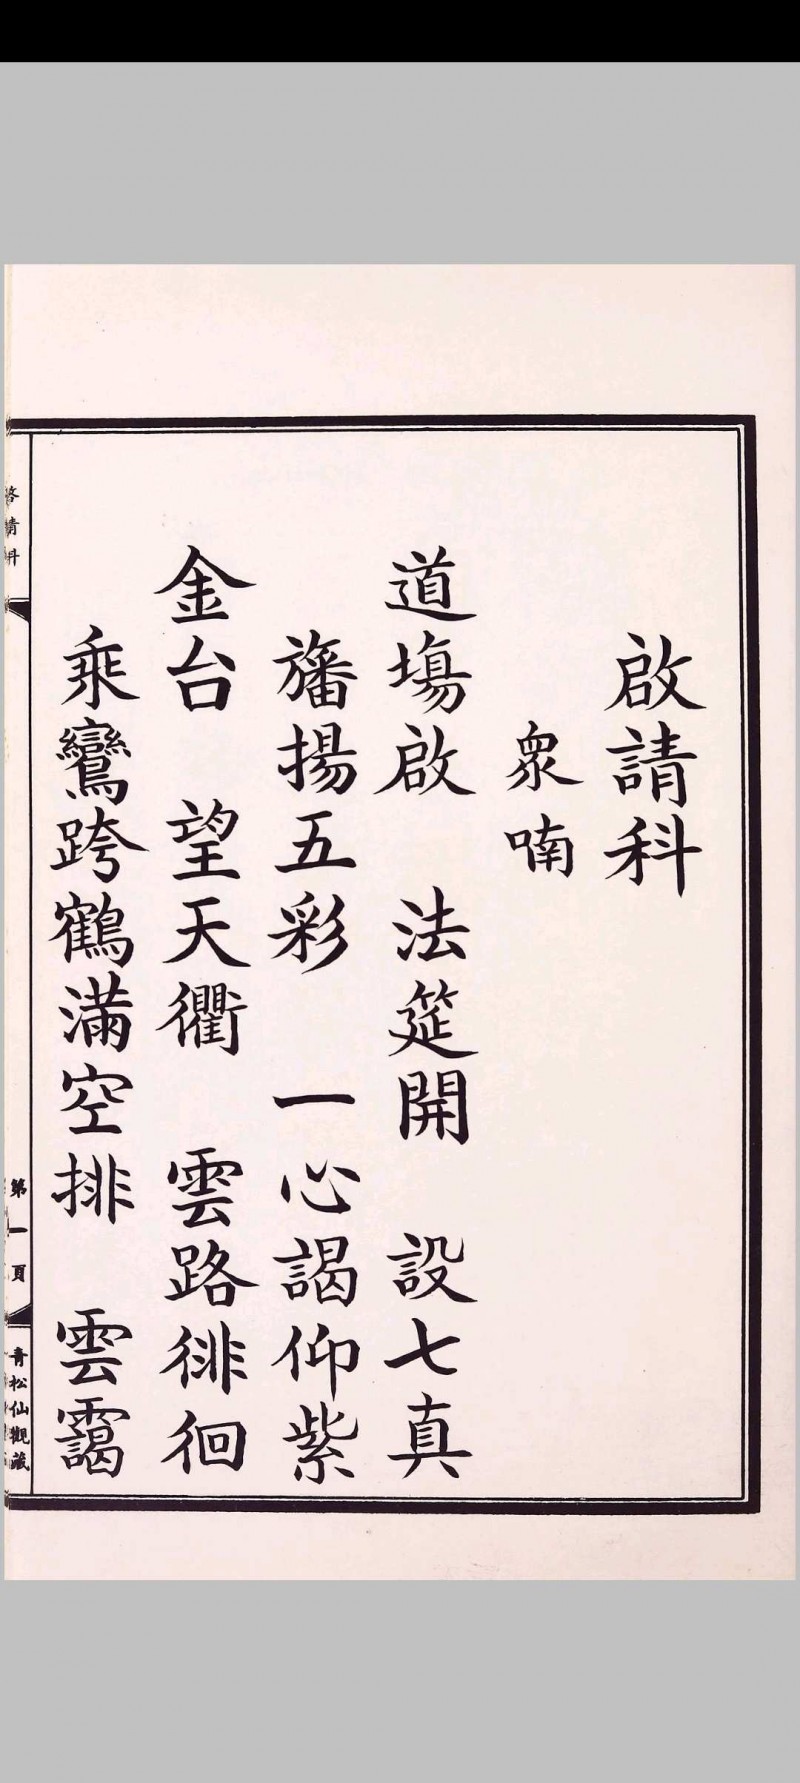 啟請科
衆喃
道塲啟　法筵開　設七真
旛揚五彩　一心謁仰紫
金台　望天衢　雲路徘徊
乘鸞跨鶴滿空排　雲靄
啓請科
第一頁
青松仙觀藏